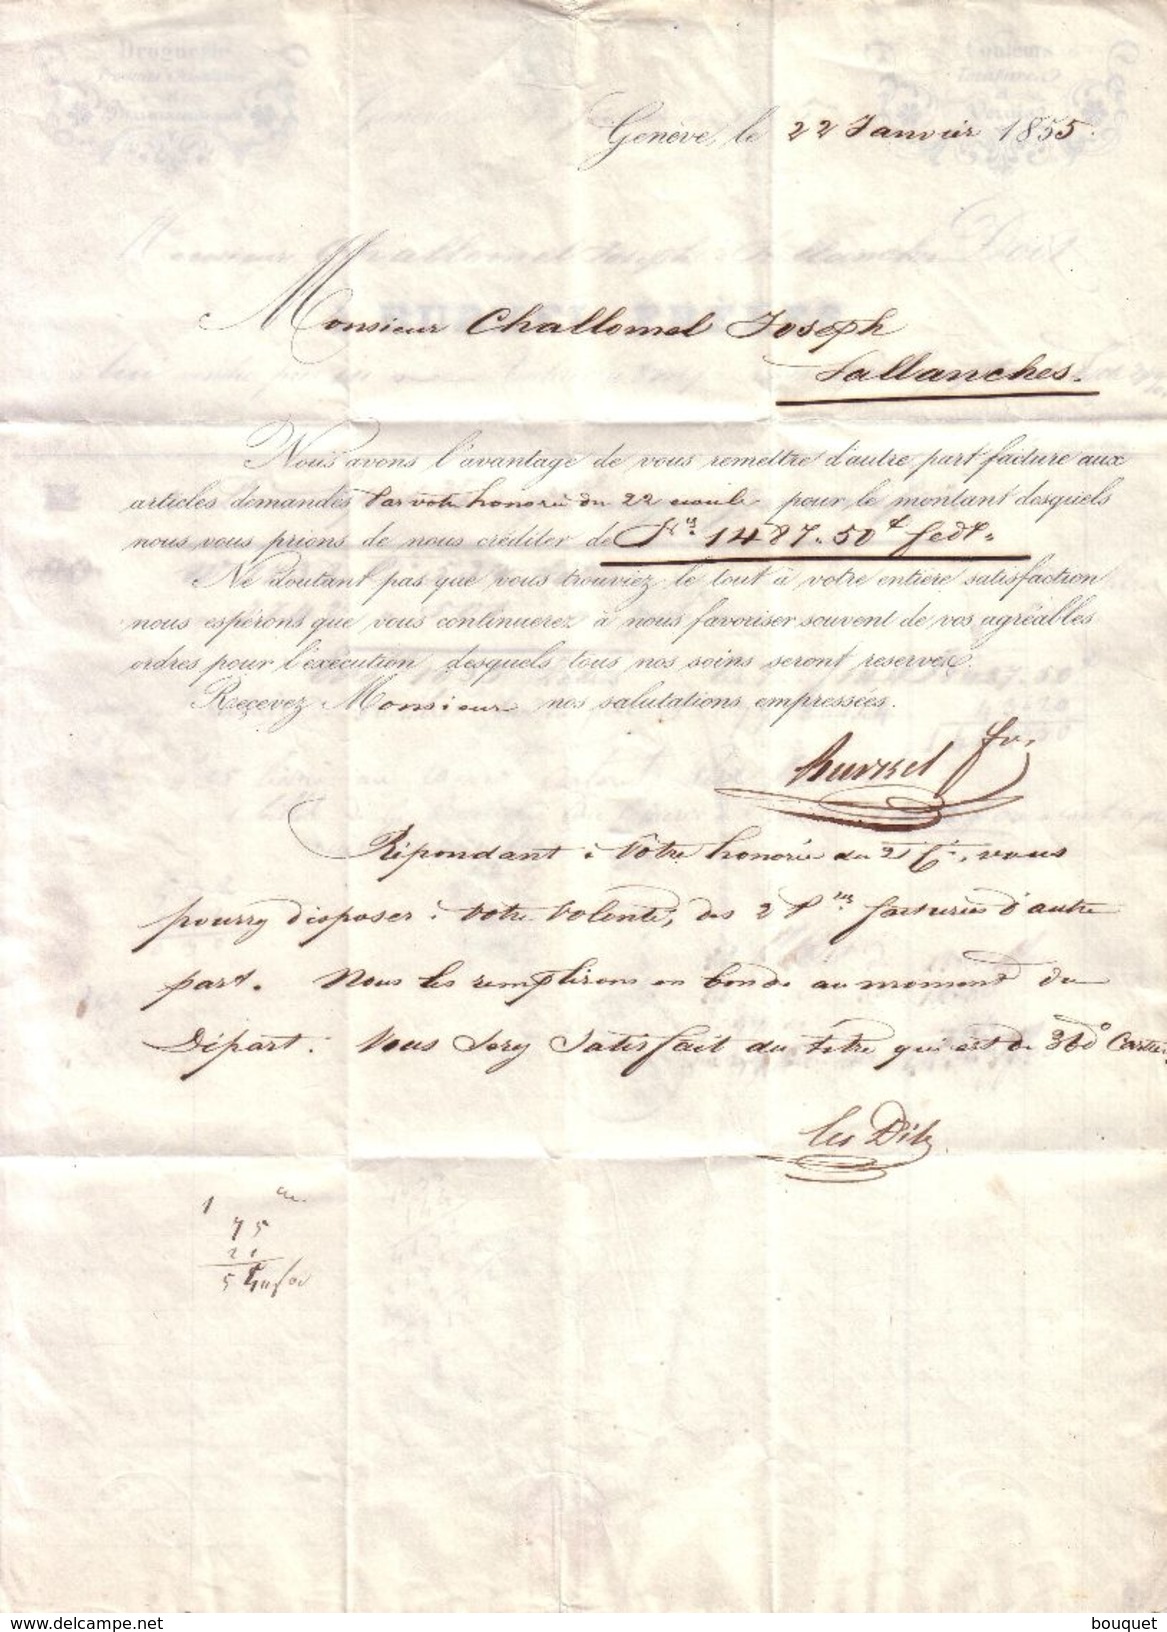 Genève, le 22 Janvier 1855.
Monsieur Challomel Joseph
Sallanches.
Nous avons l'avantage de vous remettre d'autre part facture aux
articles demandés par votre honorée du 22 pour le montant desquels
nous vous prions de nous créditer de 1487.50
Ne doutant pas que vous trouviez le tout à votre entière satisfaction
nous espérons que vous continuerez à nous favoriser souvent de vos agréables
ordres pour l'exécution desquels tous nos soins seront reservés.
Recevez Monsieur nos salutations empressées.
Répondant à Votre honorée du vous
pourry disposer à votre volonté, des 2 facturées d'autre
part. Nous les remplirons en bonde au moment du
Départ. Vous Sery Satisfait du titre qui est de 36° Cartier
Les Dits
75
delcampe.net
bouquet